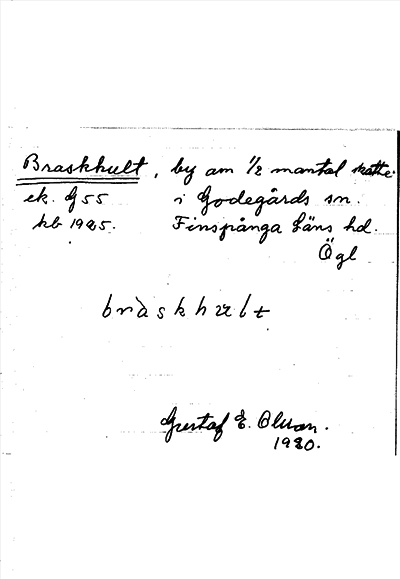 Braskhult, by om 1/2 mantal skatte
ek. G 55 i Godegårds sn.
hb 1925. Finspånga Läns hd.
Ögl
Gustaf E. Olsson.
1920.